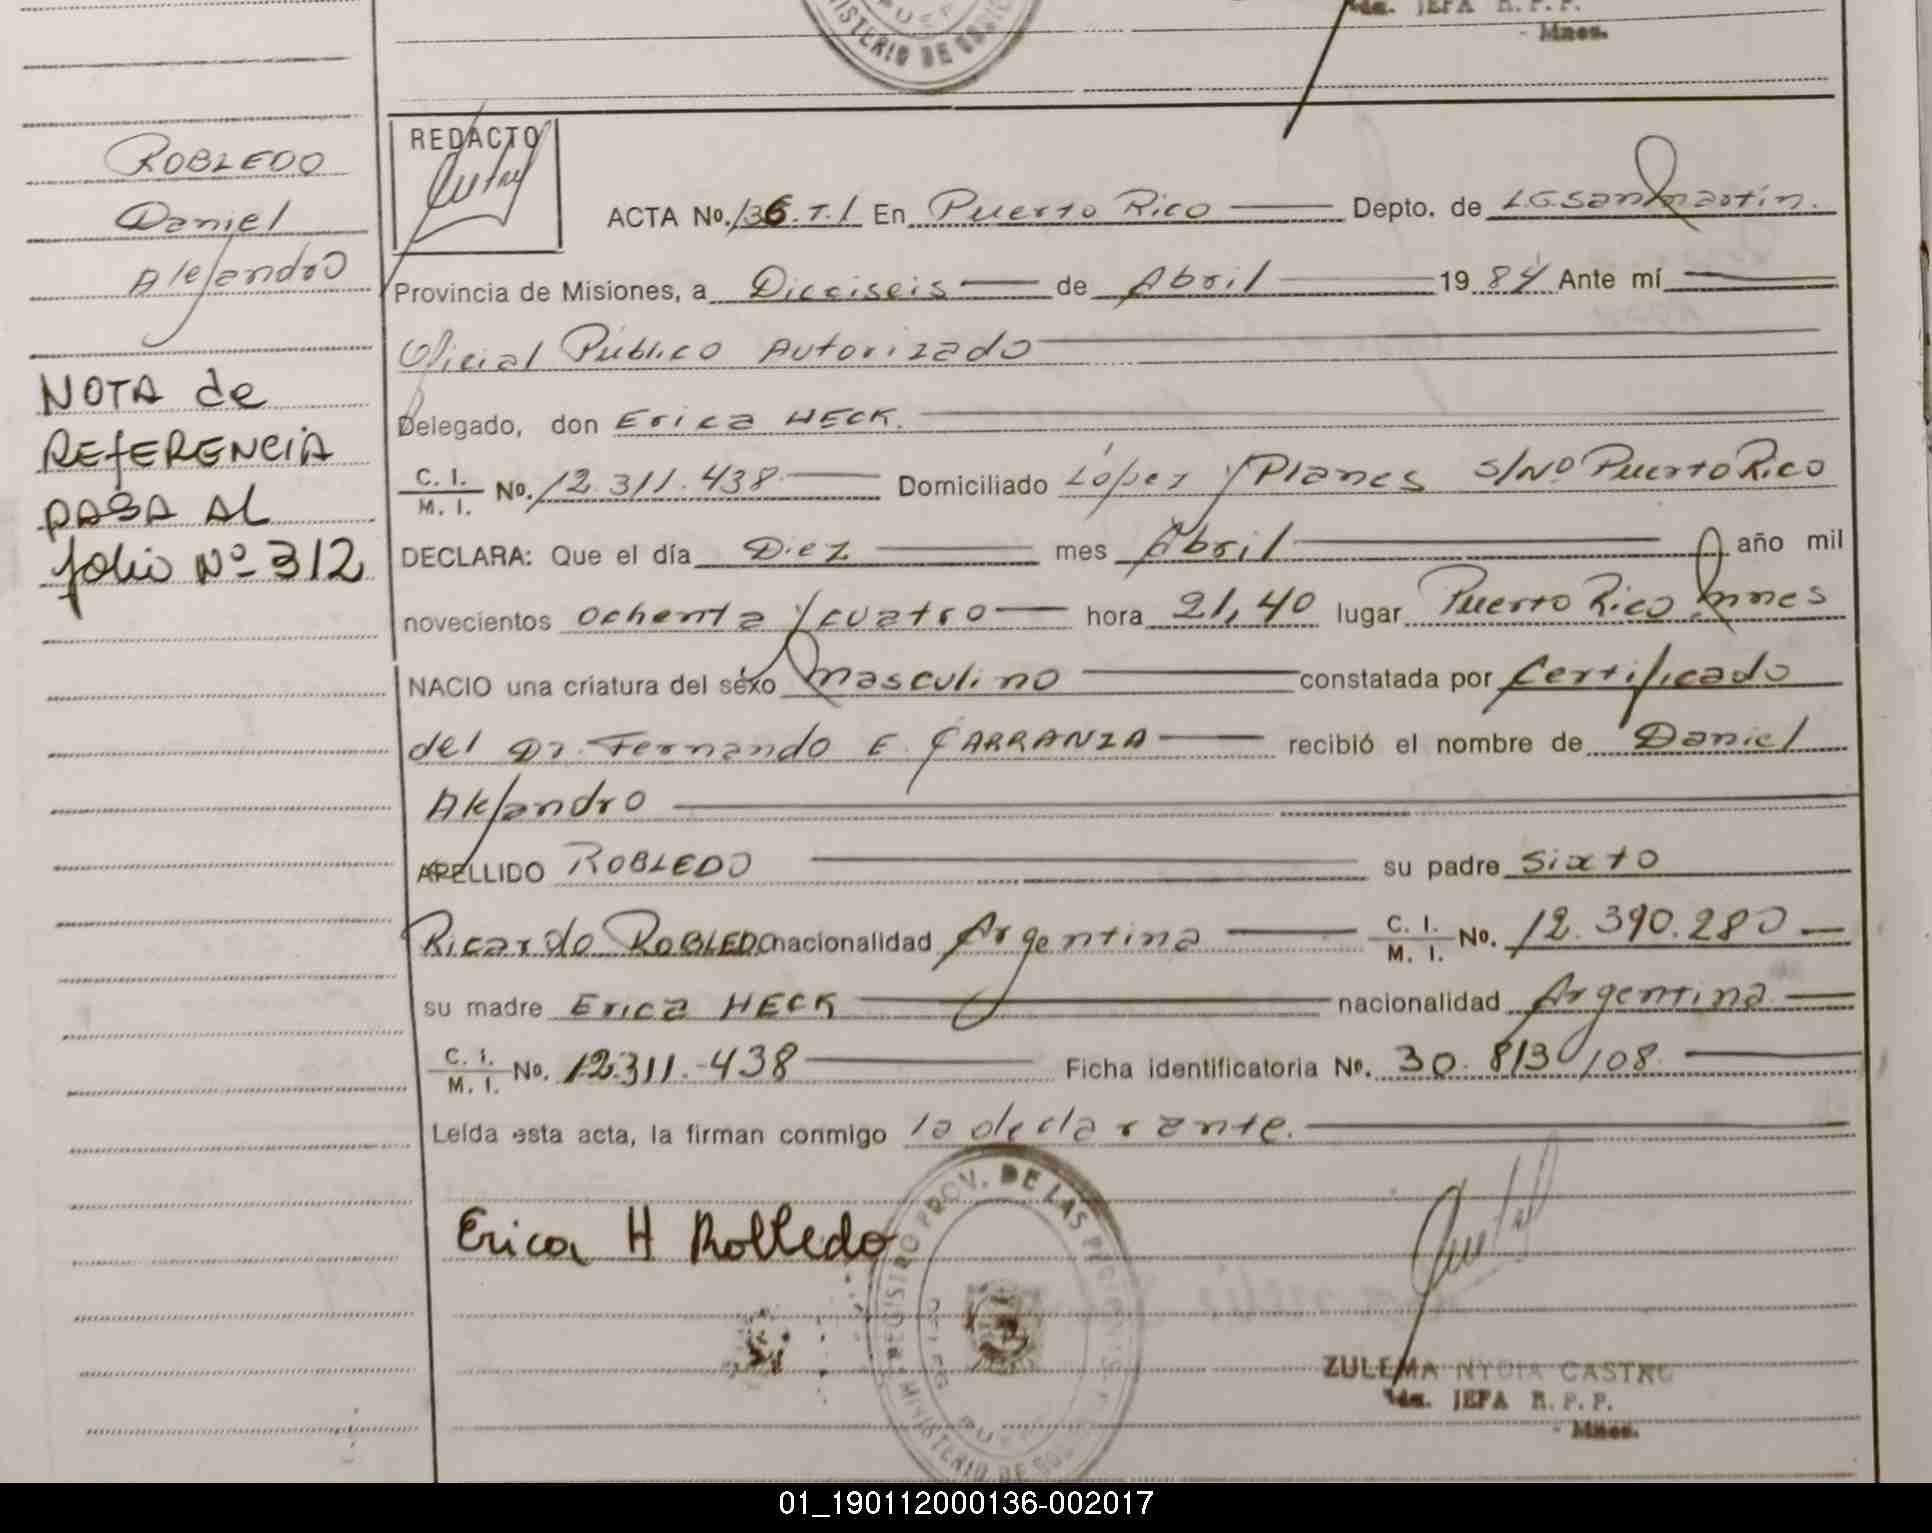 MINISTERIO DE GO
JEFA R. P. P.
- Mnes.
ROBLEDO
Daniel
Alejandro
NOTA de
REFERENCIA
PASA AL
folio Nº 312
REDACTO
ACTA No. 136. T. I En Puerto Rico Depto. de L.G. San Martín.
Provincia de Misiones, a Dieciseis de Abril 1984 Ante mí
Oficial Público Autorizado
Delegado, don Erica HECK.
C. I.
M. I. No. 12.311.438 Domiciliado López y Planes S/Nº Puerto Rico
DECLARA: Que el día Diez mes Abril año mil
novecientos ochenta y cuatro hora 21,40 lugar Puerto Rico Mnes
NACIO una criatura del sexo masculino constatada por Certificado
del Dr. Fernando E. CARRANZA recibió el nombre de Daniel
Alejandro
APELLIDO ROBLEDO su padre Sixto
Ricardo ROBLEDO nacionalidad Argentina C. I.
M. I. No. 12.390.280
su madre Erica HECK nacionalidad Argentina
C. I.
M. I. No. 12.311.438 Ficha identificatoria No. 30.813.108
Leída esta acta, la firman conmigo la declarante.
Erica H Robledo
REGISTRO PROV. DE LAS PERSONAS
MINISTERIO DE GO
ZULEMA NYDIA CASTRO
JEFA R. P. P.
- Mnes.
01_190112000136-002017